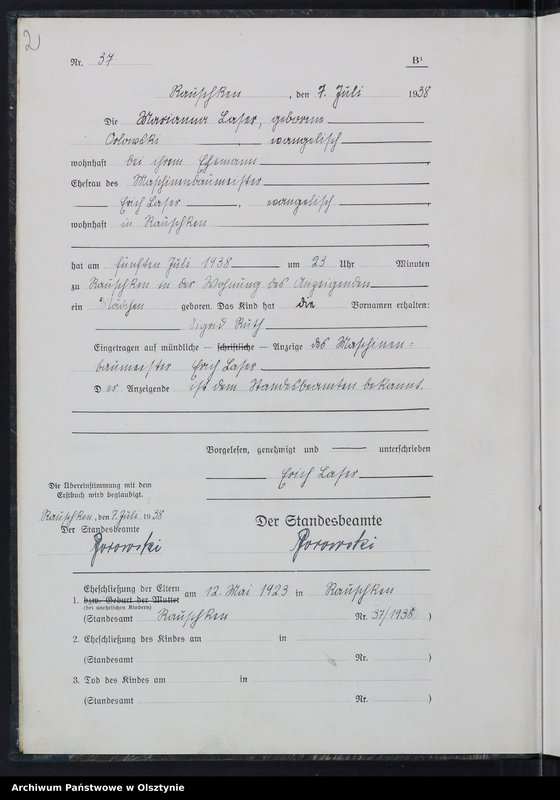 2
Nr. 37 B¹
Rauschken, den 7. Juli 1938
Die Marianna Laser, geborene
Orlowski, evangelisch
wohnhaft bei ihrem Ehemann
Ehefrau des Maschinenbaumeister
Erich Laser, evangelisch
wohnhaft in Rauschken
hat am fünften Juli 1938 um 23 Uhr Minuten
zu Rauschken in der Wohnung des Anzeigenden
ein Mädchen geboren. Das Kind hat die Vornamen erhalten:
Sigrid Ruth
Eingetragen auf mündliche — schriftliche — Anzeige des Maschinen=
baumeister Erich Laser
Der Anzeigende ist dem Standesbeamten bekannt.
Vorgelesen, genehmigt und unterschrieben
Erich Laser
Die Übereinstimmung mit dem
Erstbuch wird beglaubigt.
Rauschken, den 7. Juli 1938
Der Standesbeamte
Der Standesbeamte
Borowski
Borowski
1. Eheschließung der Eltern
bzw. Geburt der Mutter
(bei unehelichen Kindern)
am 12. Mai 1923 in Rauschken
(Standesamt Rauschken Nr. 37/1938 )
2. Eheschließung des Kindes am in
(Standesamt Nr. )
3. Tod des Kindes am in
(Standesamt Nr. )
Archiwum Państwowe w Olsztynie